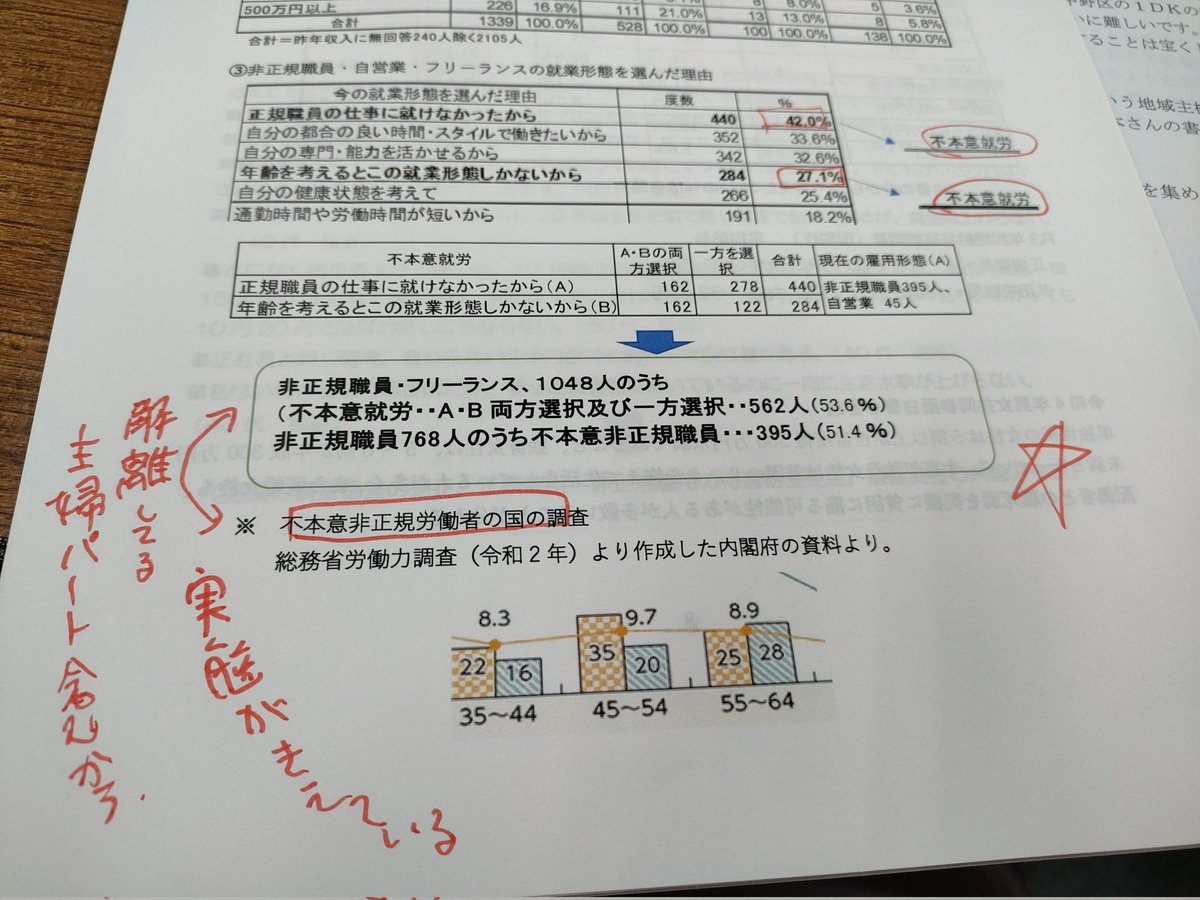 500万円以上 226 16.9% 111 21.0% 8 8.0% 5 3.6%
合計 1339 100.0% 528 100.0% 100 100.0% 138 100.0%
13 13.0% 8 5.8%
合計=昨年収入に無回答240人除く2105人
③非正規職員・自営業・フリーランスの就業形態を選んだ理由
今の就業形態を選んだ理由 度数 %
正規職員の仕事に就けなかったから 440 42.0%
自分の都合の良い時間・スタイルで働きたいから 352 33.6%
自分の専門・能力を活かせるから 342 32.6%
年齢を考えるとこの就業形態しかないから 284 27.1%
自分の健康状態を考えて 266 25.4%
通勤時間や労働時間が短いから 191 18.2%
不本意就労
不本意就労
不本意就労 A・Bの両方選択 一方を選択 合計 現在の雇用形態(A)
正規職員の仕事に就けなかったから(A) 162 278 440 非正規職員395人、
年齢を考えるとこの就業形態しかないから(B) 162 122 284 自営業 45人
非正規職員・フリーランス、1048人のうち
(不本意就労・・A・B両方選択及び一方選択・・562人(53.6%)
非正規職員768人のうち不本意非正規職員・・・395人(51.4%)
※ 不本意非正規労働者の国の調査
総務省労働力調査(令和2年)より作成した内閣府の資料より。
8.3 9.7 8.9
22 16 35 20 25 28
35~44 45~54 55~64
解離してる
主婦パート含むから.
実態がきえている
野区の1DKの
に難しいです。
ることは宝く
いう地域主
さんの書
を集め